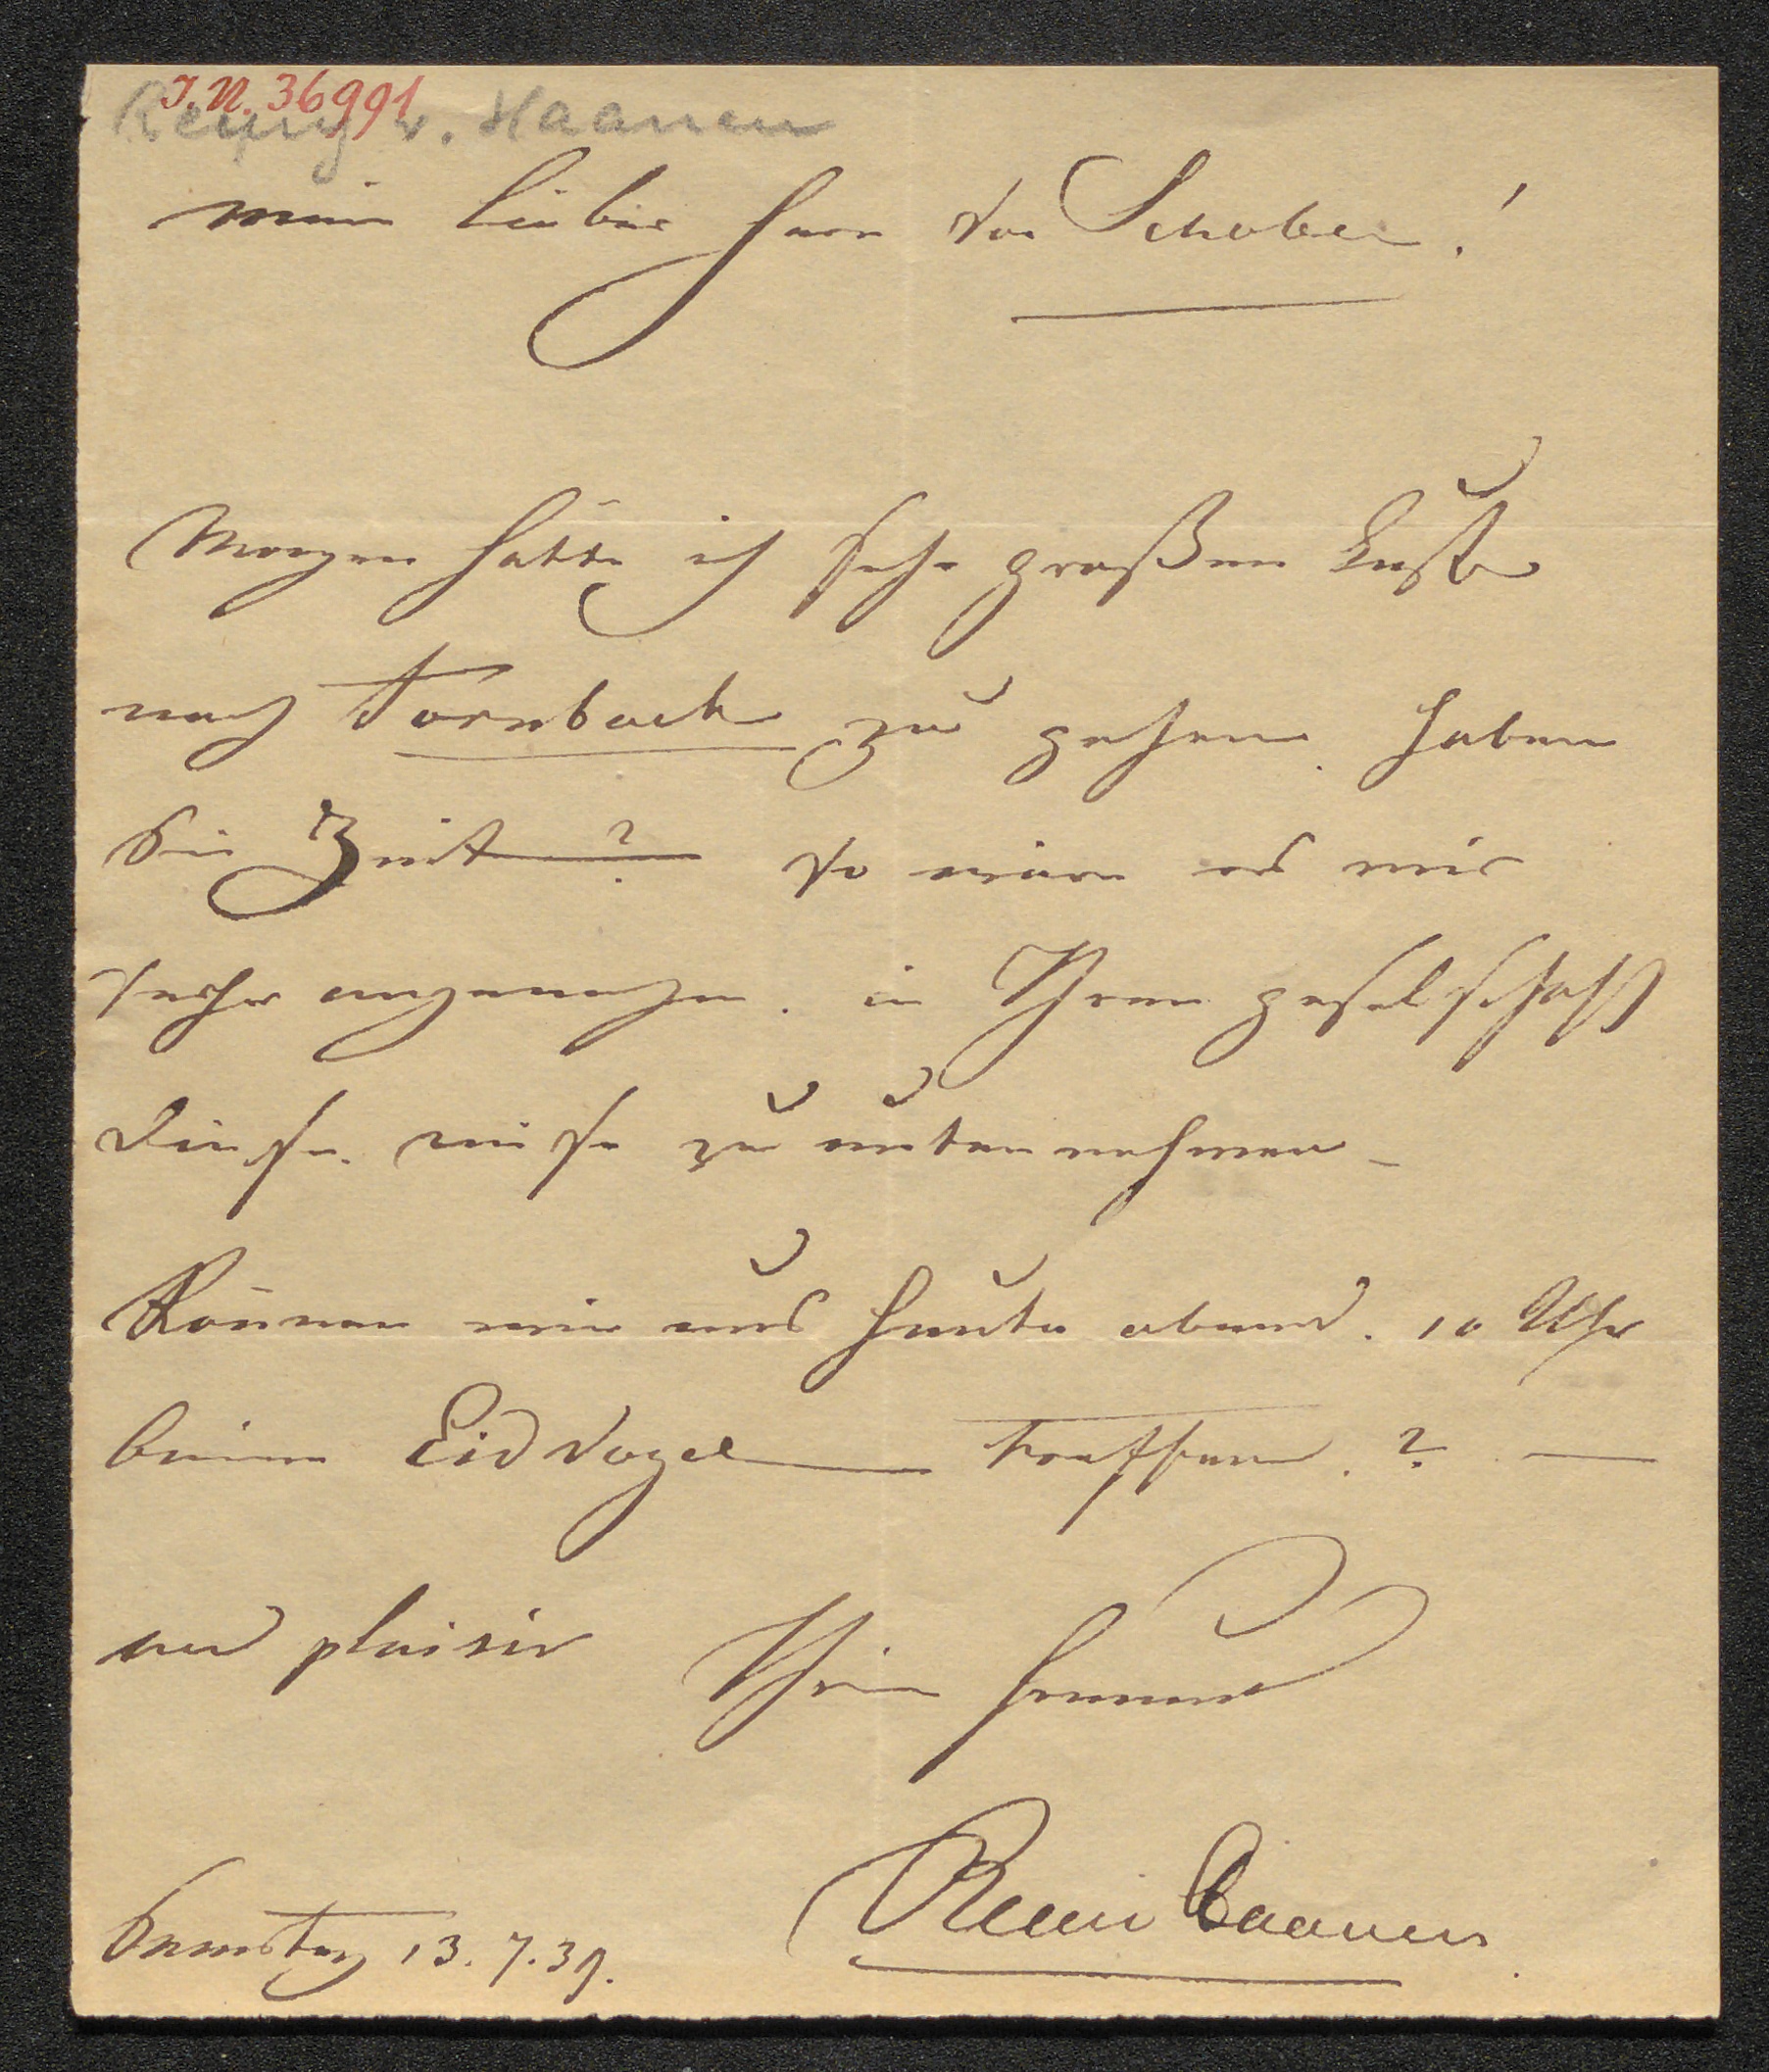 J.N. 36991
Remy v. Haanen
mein lieber Herr von Schober!
Morgen hätte ich sehr großen Lust
nach Dornbach zu gehen. haben
Sie Zeit? So wäre es mir
sehr angenehm. in Ihren geselschaft
diese reise zu unternehmen –
Können wir uns heute abend. 10 Uhr
beim Eisvogel treffen.? —
au plaisir Ihr freund
Remi Haanen
Samstag 13.7.39.